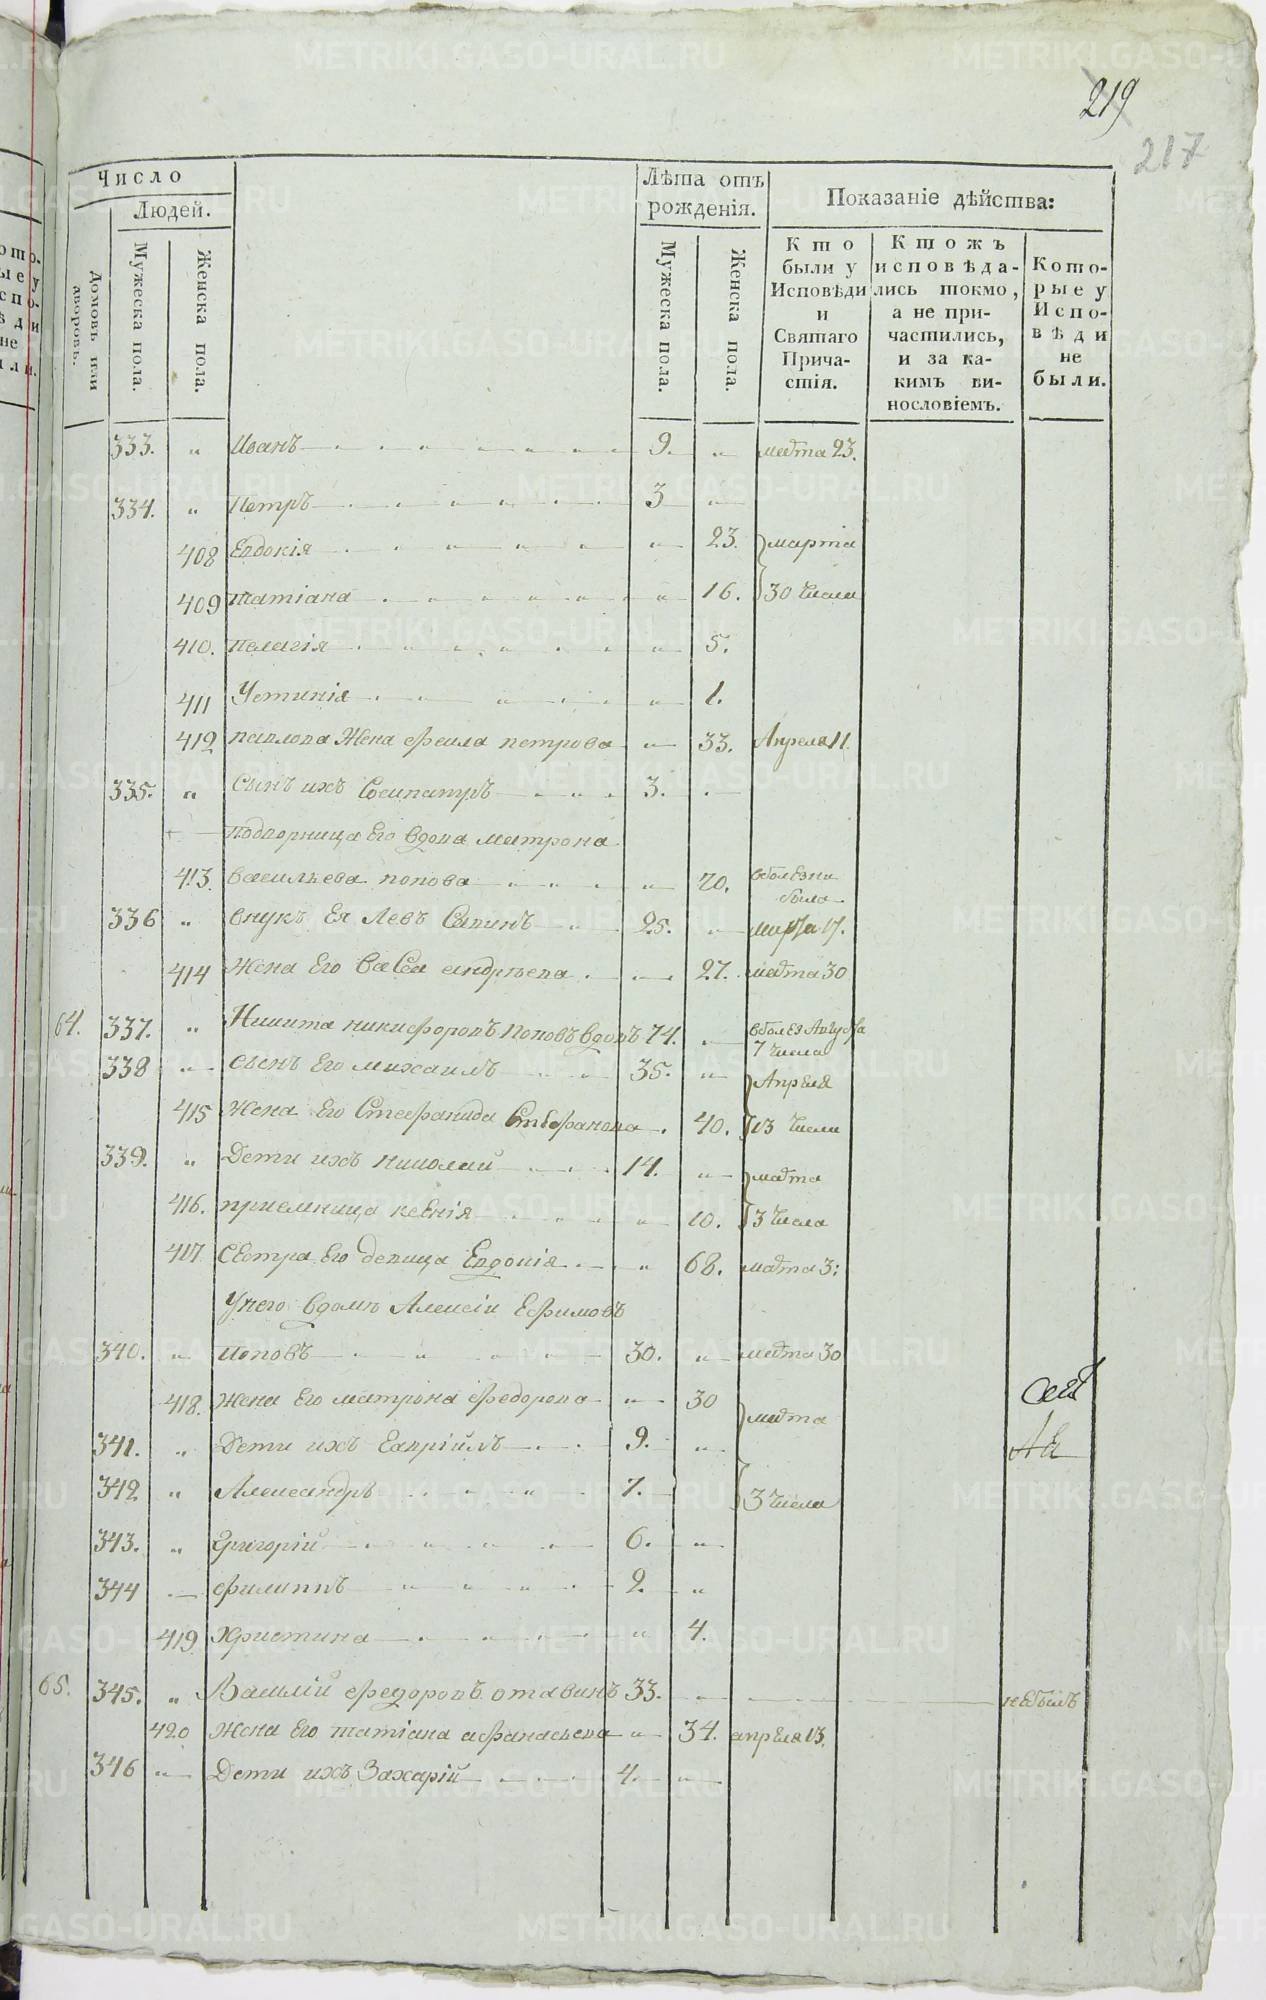 219
217
Число
Людей.
Домовъ или дворовъ.
Мужеска пола.
Женска пола.
Лѣта отъ рожденія.
Мужеска пола.
Женска пола.
Показаніе дѣйства:
Кто были у Исповѣди и Святаго Причастія.
Ктожъ исповѣдались токмо, а не причастились, и за какимъ винословіемъ.
Которые у Исповѣди не были.
333. „ Иоанъ 9. „ марта 23.
334. „ Петръ 3 „
408 Евдокія „ 23. марта
409 татіана „ 16. 30 числа
410. пелагія „ 5.
411 Устинія „ 1.
412 павлова Жена Фекла петрова „ 33. Апреля 11.
335. „ Сынъ ихъ Сосипатръ 3.
подворница Его вдова матрона
413. васильева попова „ 70. вболезни была
336 „ внукъ Ея Левъ 25. „ марта 17.
414 Жена Его васса андреева 27. марта 30
64. 337. „ Никита никифоровъ поповъ вдовъ 74. вболез Августа 7 числа
338 „ сынъ Его михаилъ 35. „ Апреля
415 Жена Его Стефанида Стефанова 40. 13 числа
339. „ Дети ихъ николай 14. „ марта
416. приемница ксенія „ 10. 3 числа
417 СЕстра Его девица Евдокія „ 68. марта 3:
Унего вдоме Алексіи Ефимовъ
340. „ поповъ 30. „ марта 30
418. Жена Его матрона федорова „ 30 марта
341. „ Дети ихъ Гавріилъ 9. „
342 „ Александръ 7. 3 числа
343. „ Григорій 6. „
344 филиппъ 2. „
419 Христина „ 4.
65. 345. „ Василій федоровъ отавинъ 33. небылъ
420 Жена Его татіана афанасьева „ 34. апреля 13.
346 „ Дети ихъ Захарій 4. „
METRIKI.GASO-URAL.RU